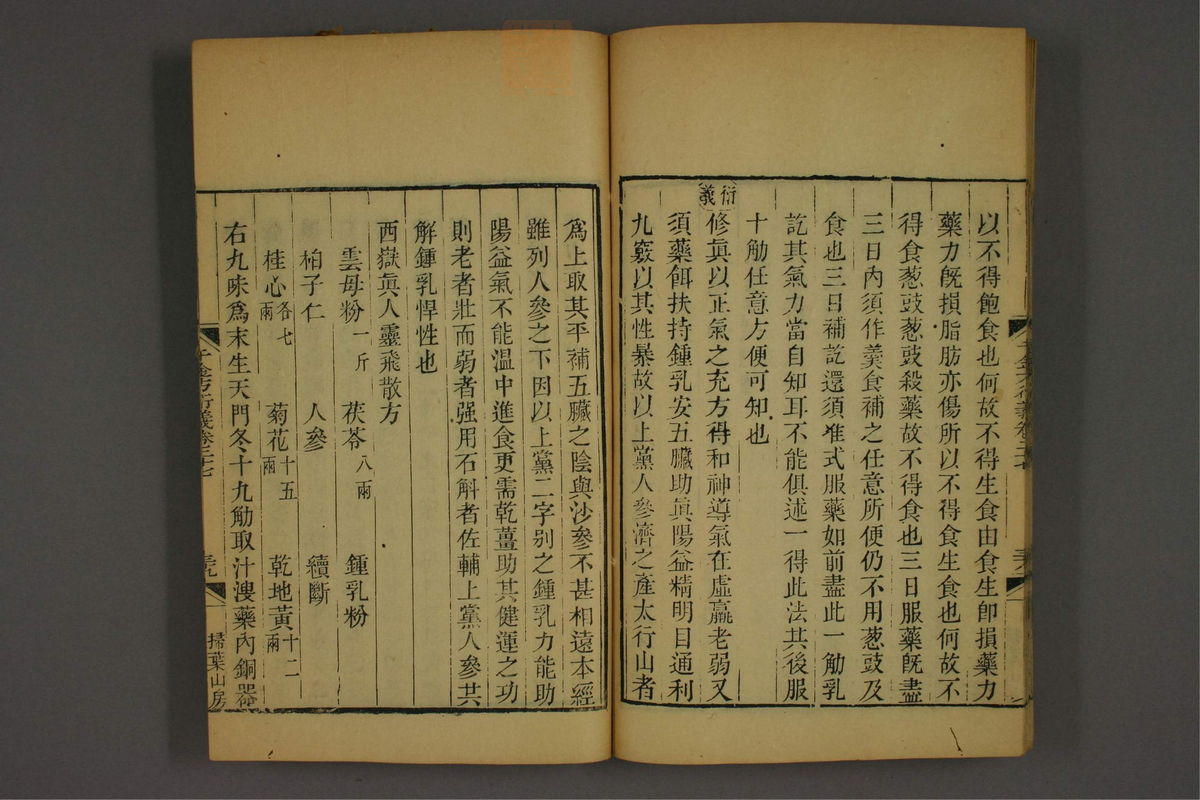 以不得飽食也何故不得生食由食生卽損藥力
藥力旣損脂肪亦傷所以不得食生食也何故不
得食葱豉葱豉殺藥故不得食也三日服藥旣盡
三日內須作羹食補之任意所便仍不用葱豉及
食也三日補訖還須准式服藥如前盡此一觔乳
訖其氣力當自知耳不能俱述一得此法其後服
十觔任意方便可知也
衍義
修眞以正氣之充方得和神導氣在虛羸老弱又
須藥餌扶持鍾乳安五臟助眞陽益精明目通利
九竅以其性暴故以上黨人參濟之產太行山者
爲上取其平補五臟之陰與沙參不甚相遠本經
雖列人參之下因以上黨二字别之鍾乳力能助
陽益氣不能溫中進食更需乾薑助其健運之功
則老者壯而弱者强用石斛者佐輔上黨人參共
解鍾乳悍性也
西嶽眞人靈飛散方
雲母粉一斤 茯苓八兩 鍾乳粉
柏子仁 人參 續斷
桂心各七兩 菊花十五兩 乾地黃十二兩
右九味爲末生天門冬十九觔取汁溲藥內銅器
千金方衍義卷二十七 三九
掃葉山房